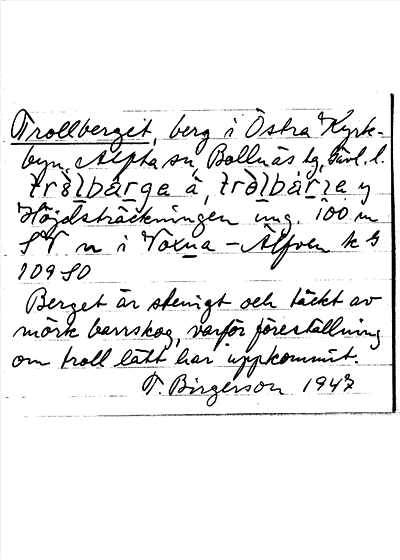 Trollberget, berg i Östra Kyrk-
byn, Alfta sn, Bollnäs tg, Gävl. l.
trɔ̀lbárga ä, trɔ̀lbárja y
Höjdsträckningen ung. 100 m
SV n i Voxna – Älfven k G
109 SO
Berget är stenigt och täckt av
mörk barrskog, varför föreställning
om troll lätt har uppkommit.
T. Birgerson 1947